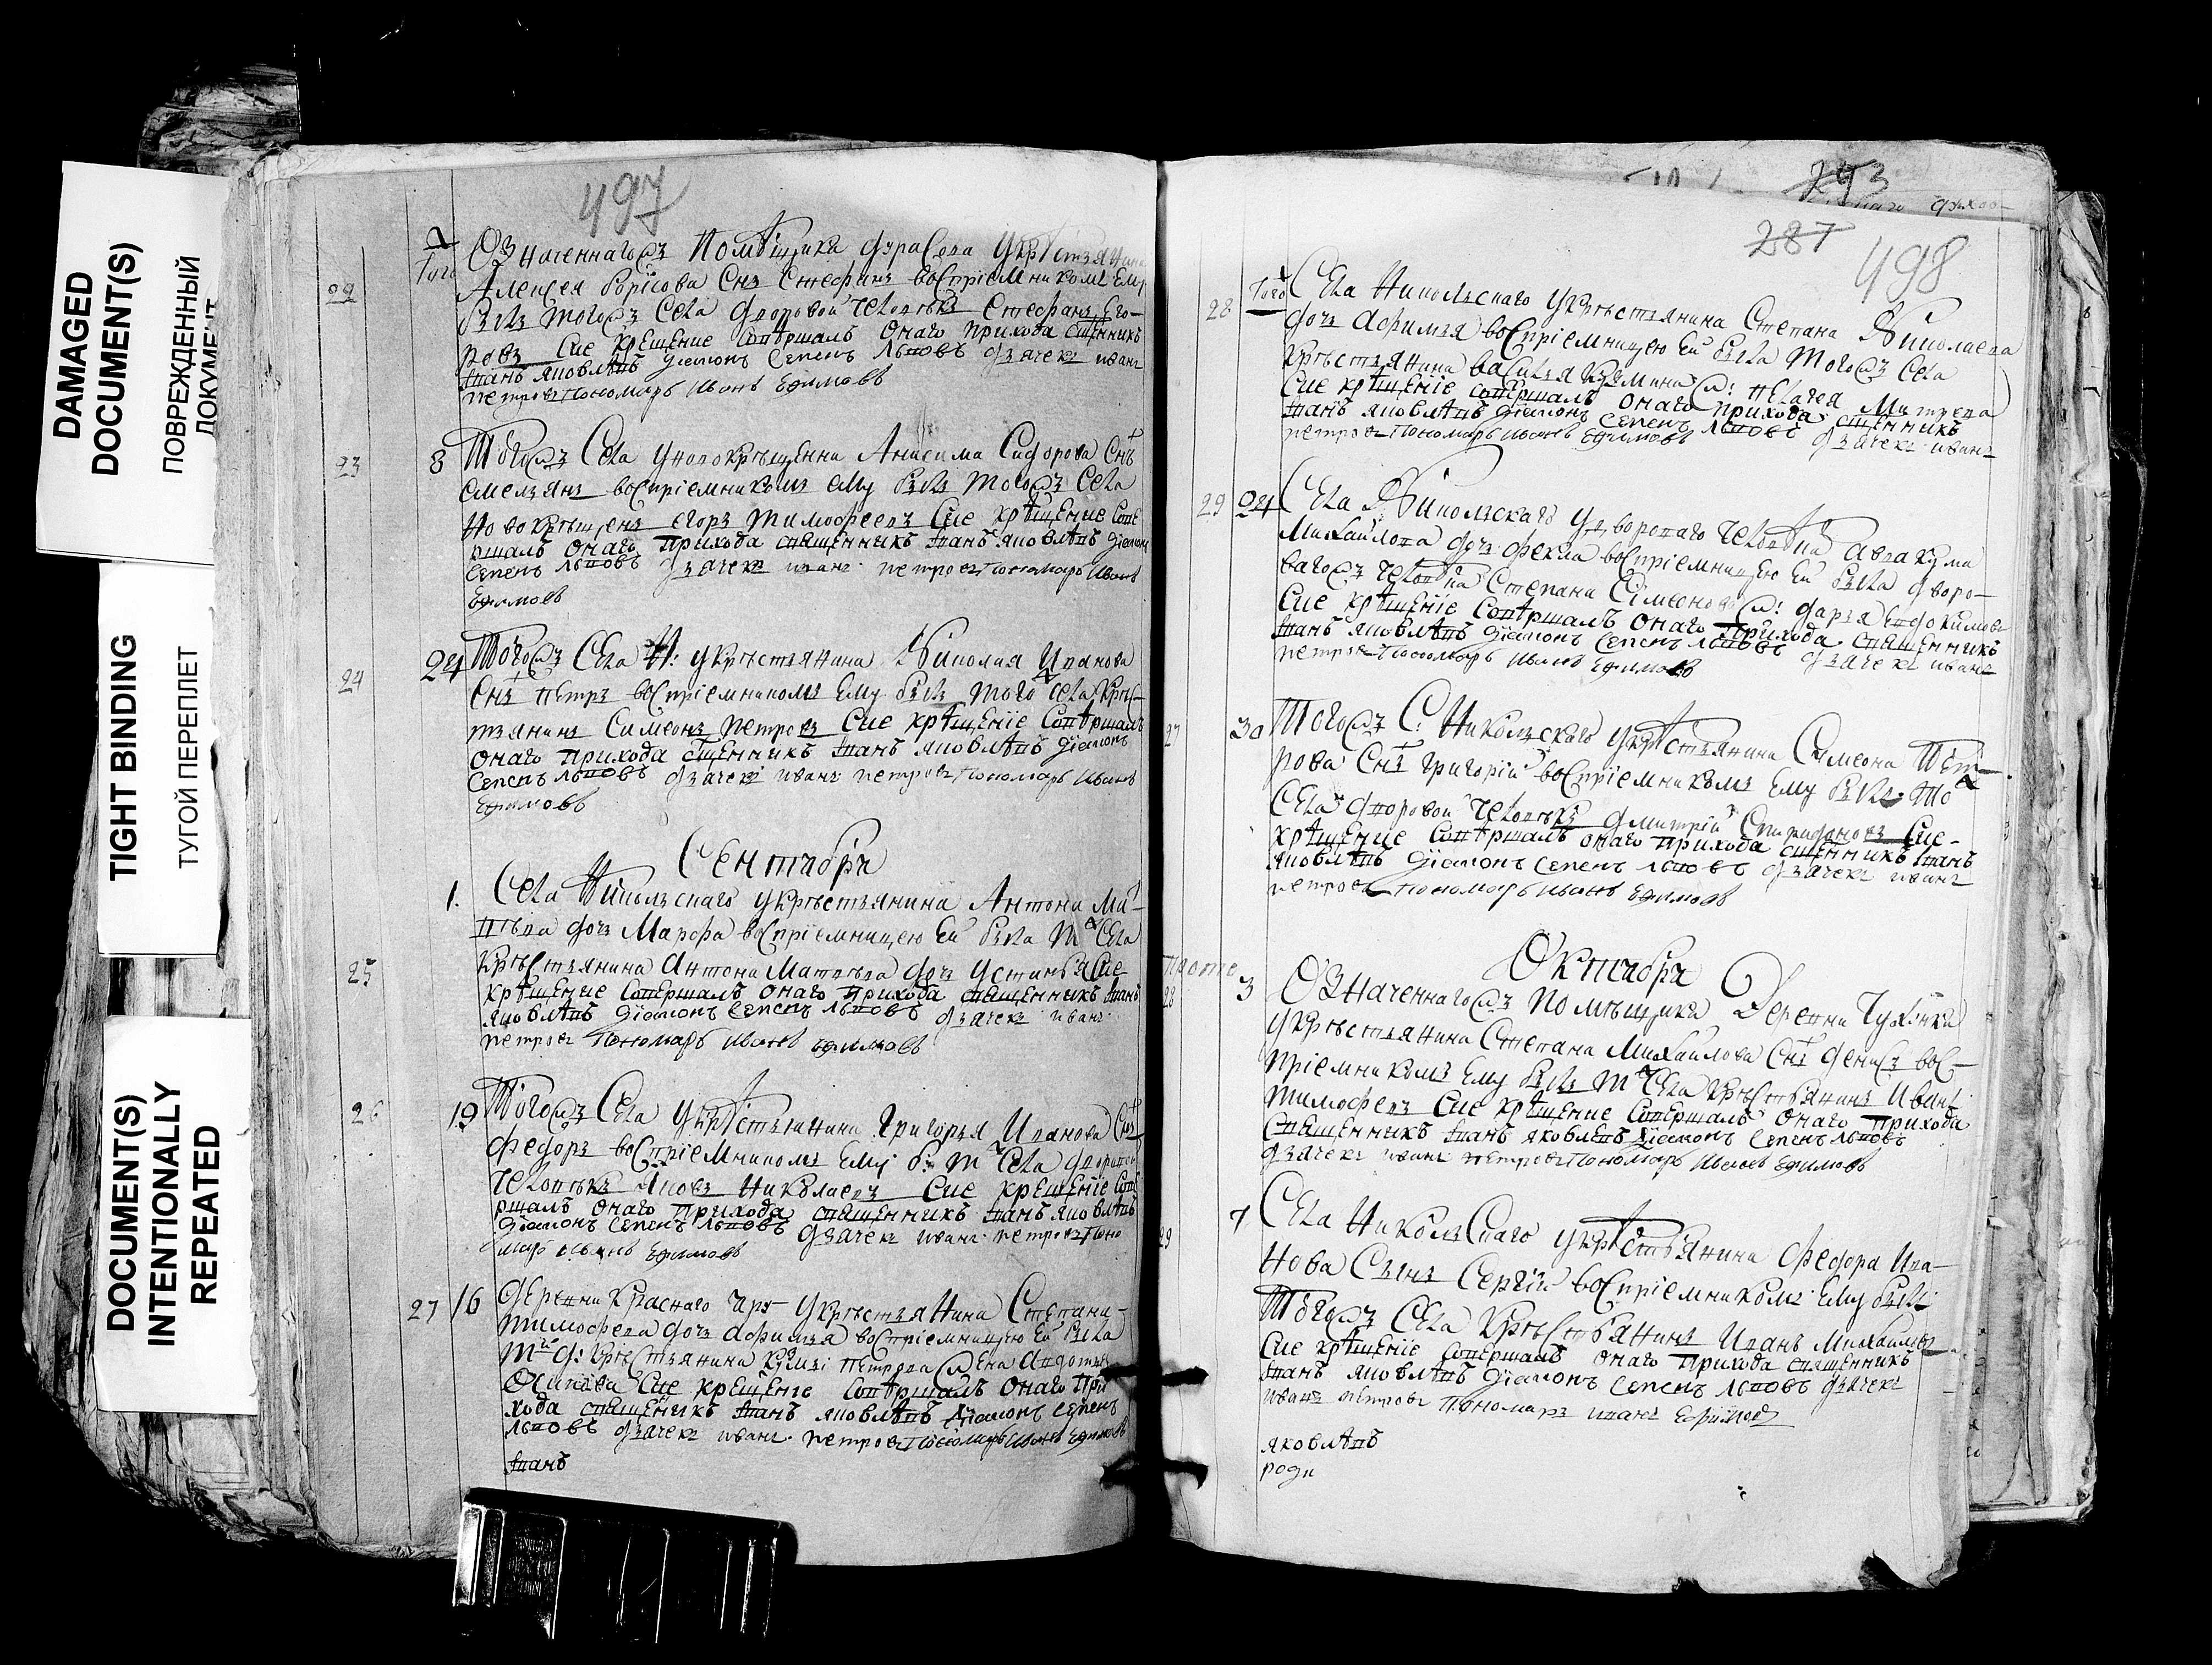 DAMAGED
DOCUMENT(S)
ПОВРЕЖДЕННЫЙ
TIGHT BINDING
ТУГОЙ ПЕРЕПЛЕТ
DOCUMENT(S)
INTENTIONALLY
REPEATED
497
Означеннагожъ помѣщика укрѣстьянина
22 Того Алексея Борисова снъ Стефанъ воспріемникомъ ему
былъ тогожъ села дворовой человѣкъ Стефанъ Его-
ровъ Сие крещение совѣршалъ онаго прихода сщенникъ
іванъ яковлѣвъ діаконъ семенъ львовъ дьячекъ иванъ
петровъ пономарь Иванъ Ефимовъ
23 8 Тогожъ села у новокрѣщенна Анисима Сидорова снъ
емельянъ воспріемникомъ ему былъ тогожъ села
новокрѣщенъ егоръ тимофеевъ Сие крѣщение сове
ршалъ онаго прихода священникъ іванъ яковлѣвъ діаконъ
семенъ львовъ дьячекъ иванъ петровъ пономарь Иванъ
Ефимовъ
24 24 Тогожъ села Н: укрѣстьянина Николая Иванова
снъ петръ воспріемникомъ ему былъ того села крѣс-
тьянинъ Симеонъ петровъ Сие крѣщеніе совѣршалъ
онаго прихода сщенникъ іванъ яковлѣвъ діаконъ
семенъ львовъ дьячекъ иванъ петровъ пономарь Иванъ
Ефимовъ
Сентября
1. Села Никольскаго укрѣстьянина Антона Ма-
твѣва дочь Марфа воспріемницею ей была т села
25 крѣстьянина Антона Матвѣва дочь Устинья Сие
крѣщение совершалъ онаго прихода священникъ іванъ
яковлѣвъ діаконъ семенъ львовъ дьячекъ иванъ
петровъ пономарь Иванъ Ефимовъ
26 19 Тогожъ села укрѣстьянина Григорья Иванова снъ
федоръ воспріемникомъ ему б: т села дворовой
человѣкъ Яковъ Николаевъ Сие крещеніе сове
ршалъ онаго прихода священникъ іванъ яковлѣвъ
діаконъ семенъ львовъ дьячекъ иванъ петровъ поно
марь Иванъ Ефимовъ
27 16 деревни Краснаго укрѣстьянина Степана
тимофева дочь Афимья воспріемницею ей была
той д: крѣстьянина петрова жена Авдотья
Осипова Сие крещение совѣршалъ онаго при
хода священикъ іванъ яковлѣвъ діаконъ семенъ
львовъ дьячекъ иванъ петровъ пономарь Иванъ Ефимовъ
іванъ
293
287
498
28 Того Села Никольскаго укрѣстьянина Степана Николаева
дочь Афимья воспріемницею ей была тогожъ села
крѣстьянина Василья Кузмина ж: пелагея
Сие крѣщеніе совершалъ онаго прихода сщенникъ
іванъ яковлѣвъ діаконъ семенъ львовъ дьячекъ иванъ
петровъ пономарь Иванъ Ефимовъ
29 24 Села Никольскаго у дворового человѣка Авакума
Михайлова дочь фекла воспріемницею ей была дворо-
вагожъ человѣка Степана Симеонова ж: дарья Евдокимова
Сие крѣщеніе совѣршалъ онаго прихода священникъ
іванъ яковлѣвъ діаконъ семенъ львовъ дьячекъ иванъ
петровъ пономарь Иванъ Ефимовъ
27 30 Тогожъ С: Никольскаго укрѣстьянина Симеона Пет-
рова снъ григорій воспріемникомъ ему былъ то
села дворовой человѣкъ дмитрій Спиридоновъ Сие
крѣщение совѣршалъ онаго прихода сщенникъ іванъ
яковлѣвъ діаконъ семенъ львовъ дьячекъ иванъ
петровъ пономарь Иванъ Ефимовъ
Октября
28 3 Означеннагожъ помѣщика деревни
укрѣстьянина Степана Михайлова снъ денисъ вос-
пріемникомъ ему былъ т села крѣстьянинъ Иванъ
тимофевъ Сие крѣщение совершалъ онаго прихода
священникъ іванъ яковлевъ діаконъ семенъ львовъ
дьячекъ иванъ петровъ пономарь Иванъ Ефимовъ
29 7 Села Никольскаго укрѣстьянина Федора Ива-
нова сынъ Сергій воспріемникомъ ему былъ
Тогожъ села крѣстьянинъ Иванъ Михайловъ
Сие крѣщеніе совершалъ онаго прихода священникъ
іванъ яковлѣвъ діаконъ семенъ львовъ дьячекъ
иванъ петровъ пономарь иванъ Ефимовъ
яковлѣвъ
роди